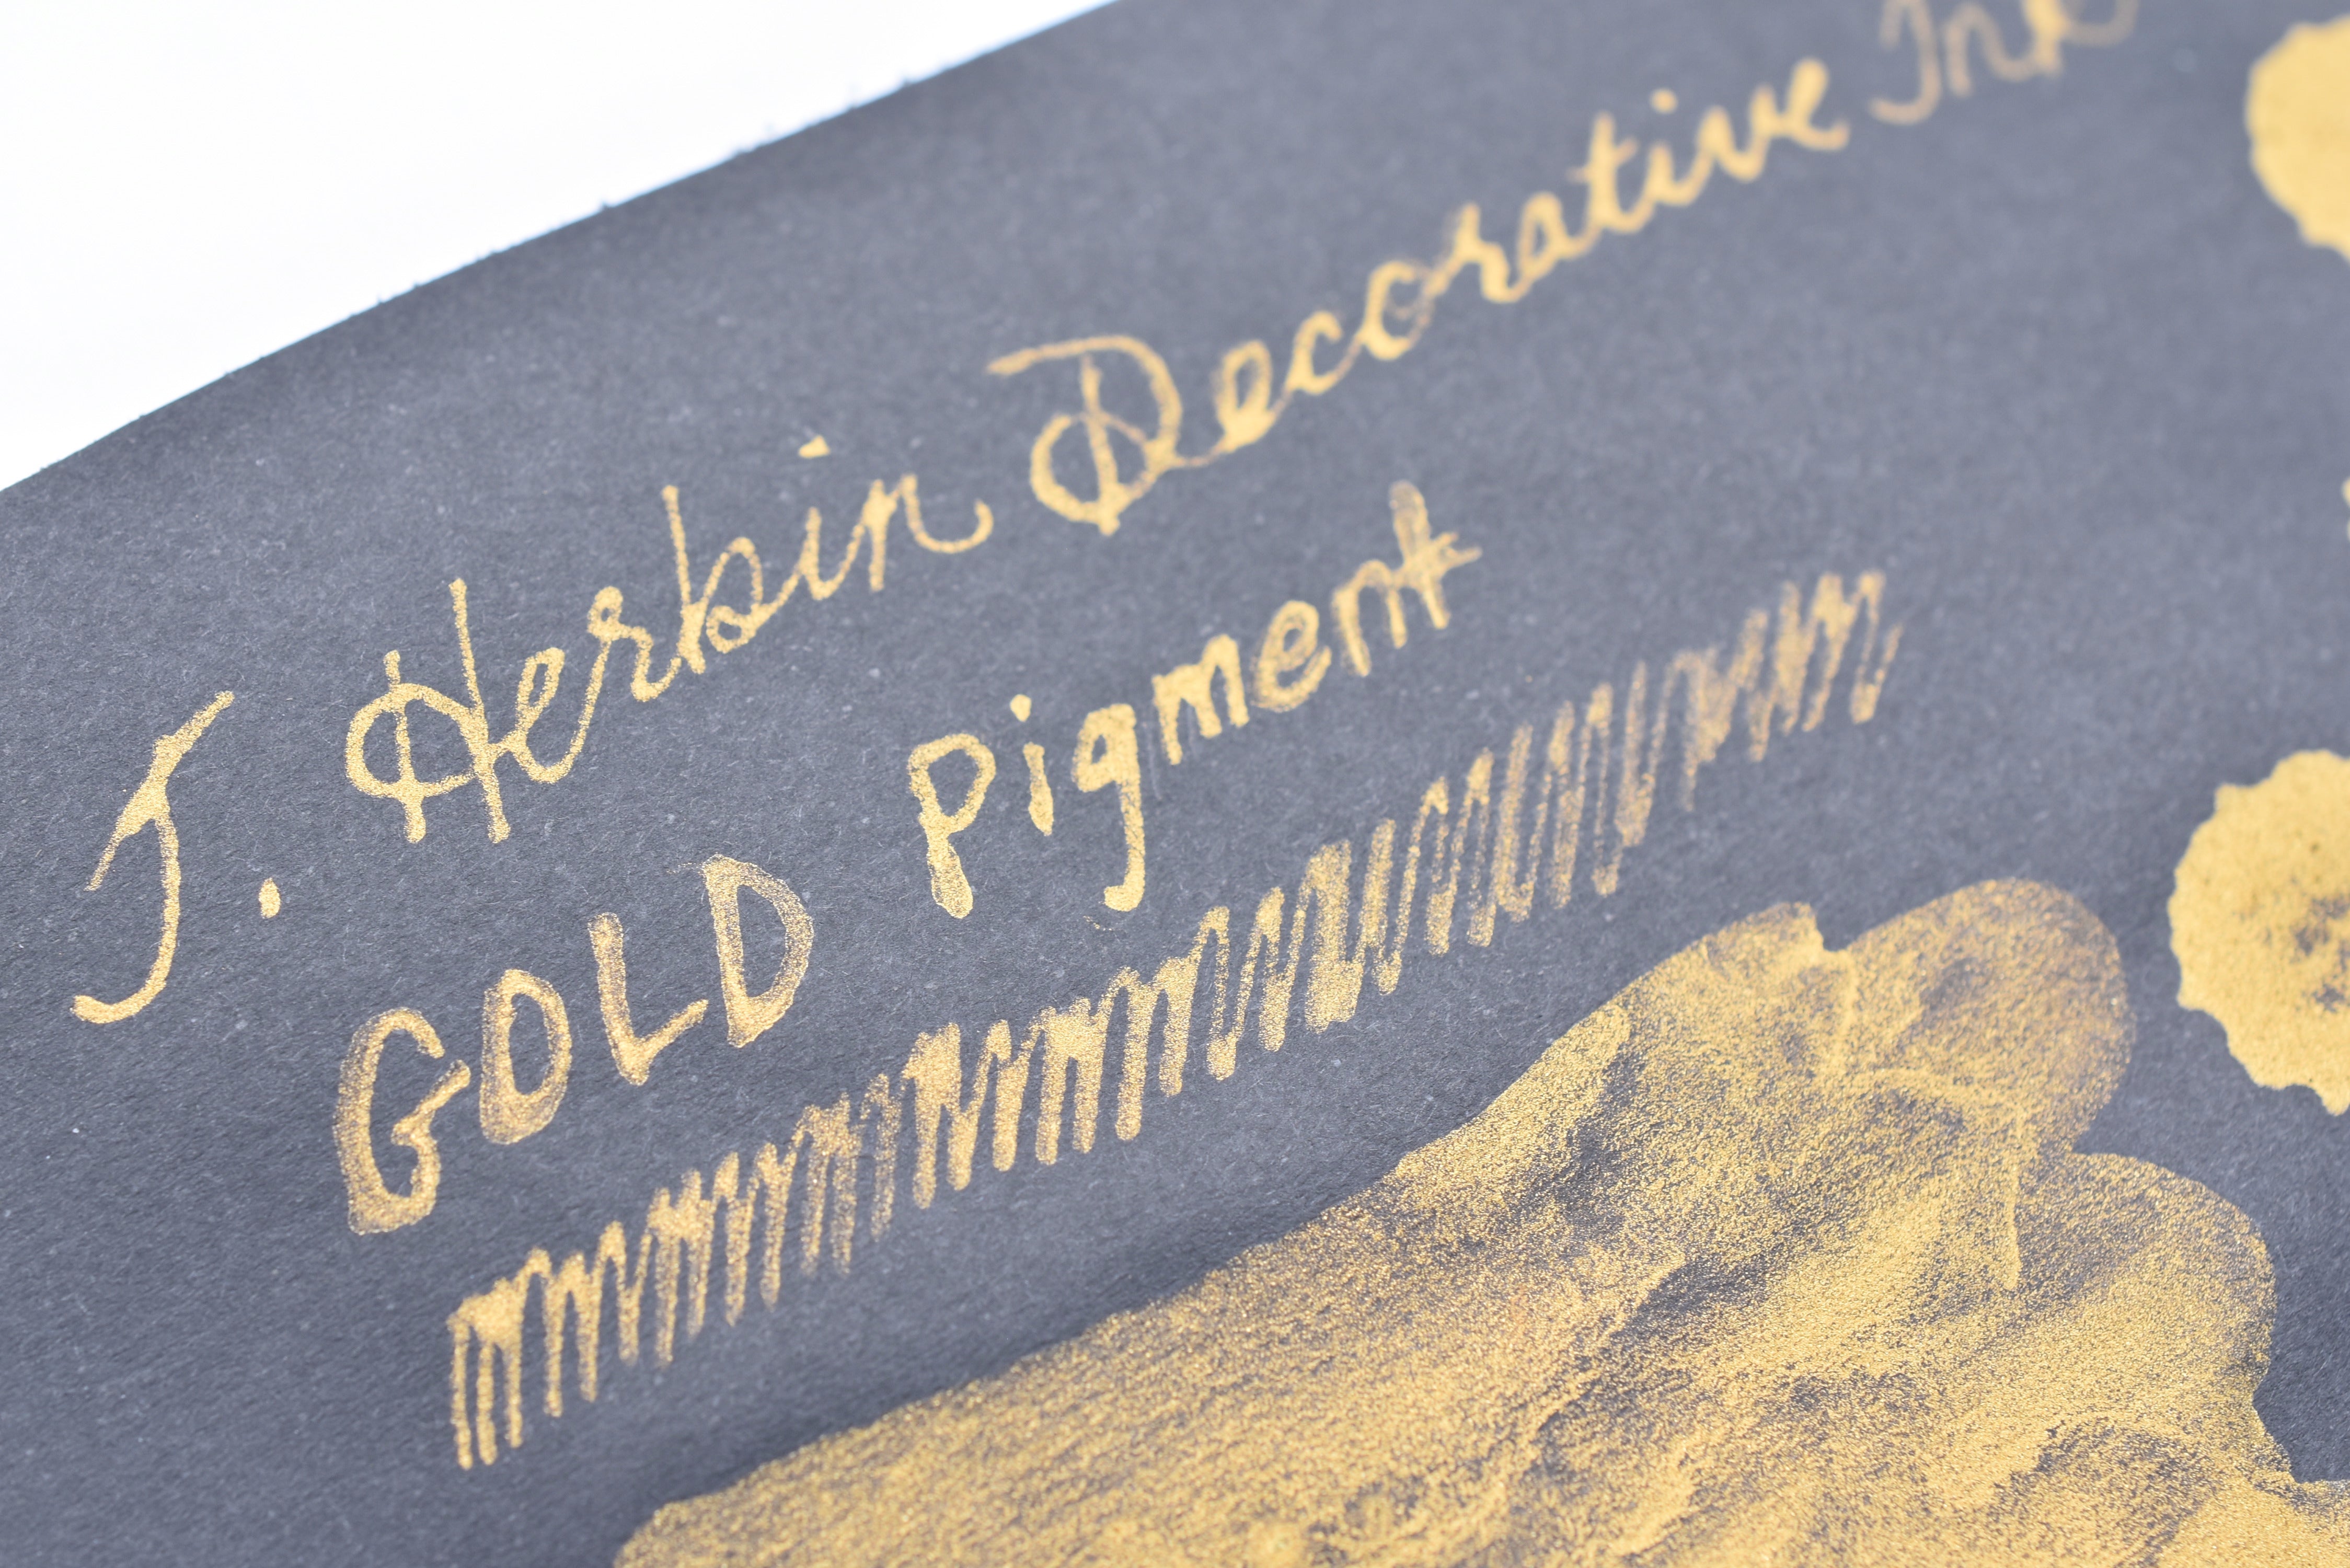 J. Herbin Decorative Ink
GOLD Pigment